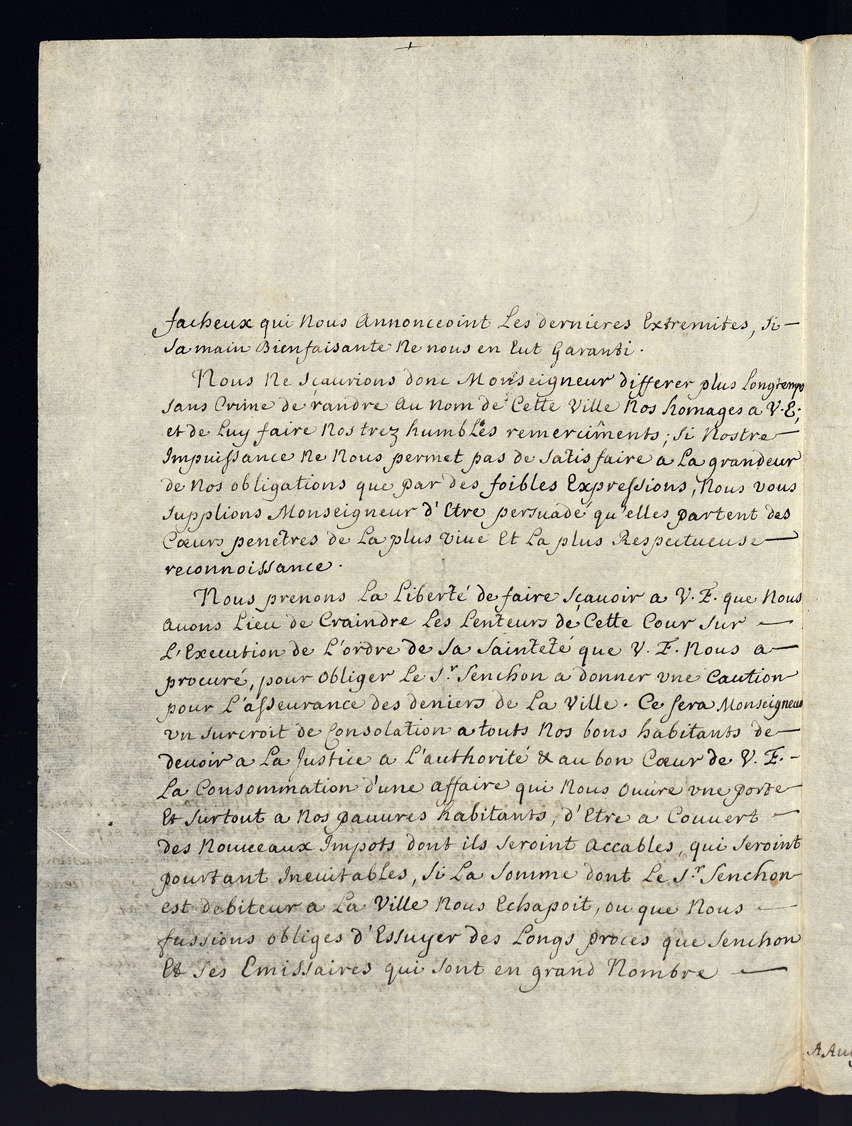 facheux qui Nous Annonceoint Les dernieres Extremites, si
sa main Bienfaisante Ne nous en Eut Garanti.
Nous Ne Scaurions donc Monseigneur differer plus Longtemps
sans Crime de randre Au Nom de Cette Ville Nos homages a V. E;
et de Luy faire Nos trez humbLes remerciments; si Nostre
Impuissance Ne Nous permet pas de Satisfaire a La grandeur
de Nos obligations que par des foibles Expressions, Nous vous
supplions Monseigneur d'Etre persuadé qu'elles partent des
Cœurs penetres de La plus viue Et La plus Respectueuse
reconnoissance.
Nous prenons La Liberté de faire sçauoir a V. E. que Nous
auons Lieu de Craindre Les Lenteurs de Cette Cour sur
L'Execution de L'ordre de Sa Sainteté que V. E. Nous a
procuré, pour obliger Le Sr Senchon a donner vne Caution
pour L'asseurance des deniers de La Ville. Ce sera Monseigneur
vn surcroit de Consolation a touts Nos bons habitants de
deuoir a La Justice a L'authorité & au bon Cœur de V. E.
La Consommation d'une affaire qui Nous Ouure vne porte
Et surtout a Nos pauures habitants, d'Etre a Couuert
des Nouueaux Impots dont ils seroint accables, qui seroint
pourtant Ineuitables, si La somme dont Le Sr Senchon
est debiteur a La Ville Nous Echapoit, ou que Nous
fussions obliges d'Essuyer des Longs proces que Senchon
Et ses Emissaires qui sont en grand Nombre